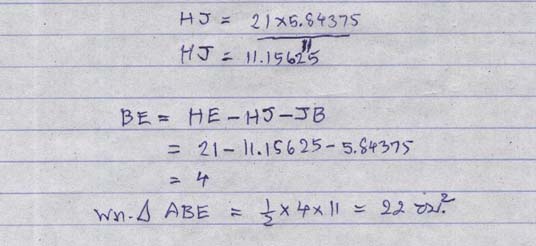 HJ = 21×5.84375
11
HJ = 11.15625
BE = HE - HJ - JB
= 21 - 11.15625 - 5.84375
= 4
พท.Δ ABE = 1/2 × 4 × 11 = 22 ตร.²